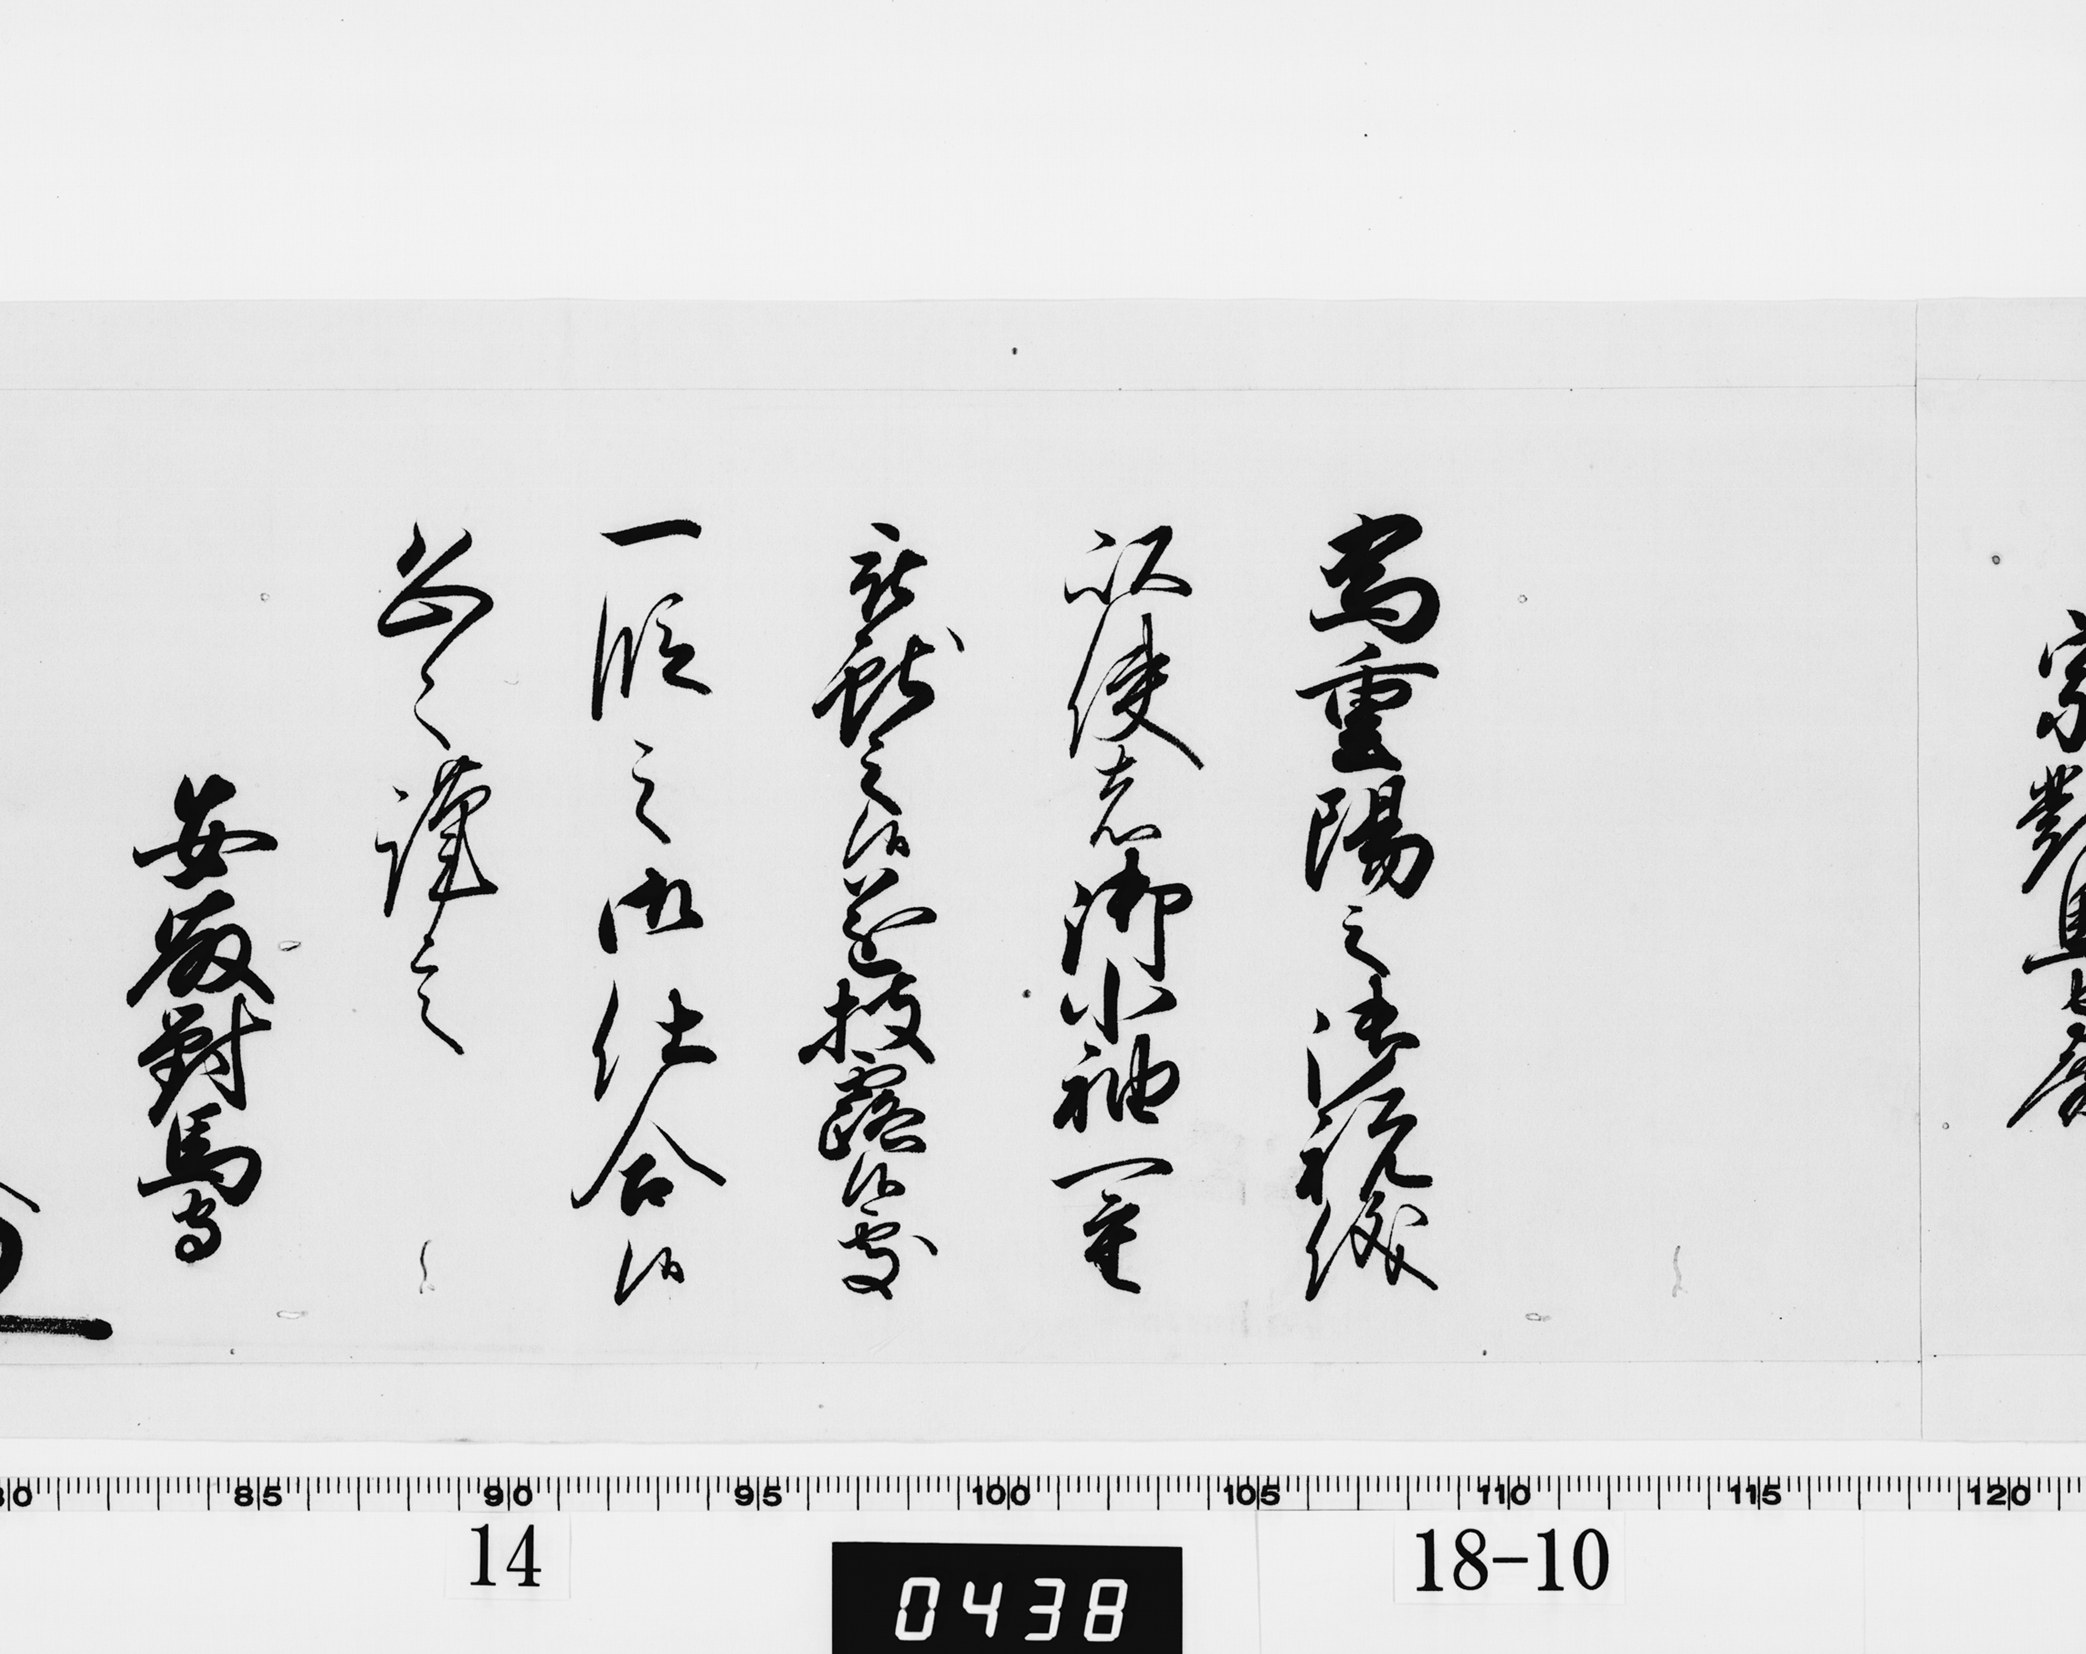 為重陽之御祝儀
以使者御小袖一重
被献之候遂披露候處
一段之御仕合候
恐々謹言
安藤對馬守
80 85 90 95 100 105 110 115 120
14
18-10
0438